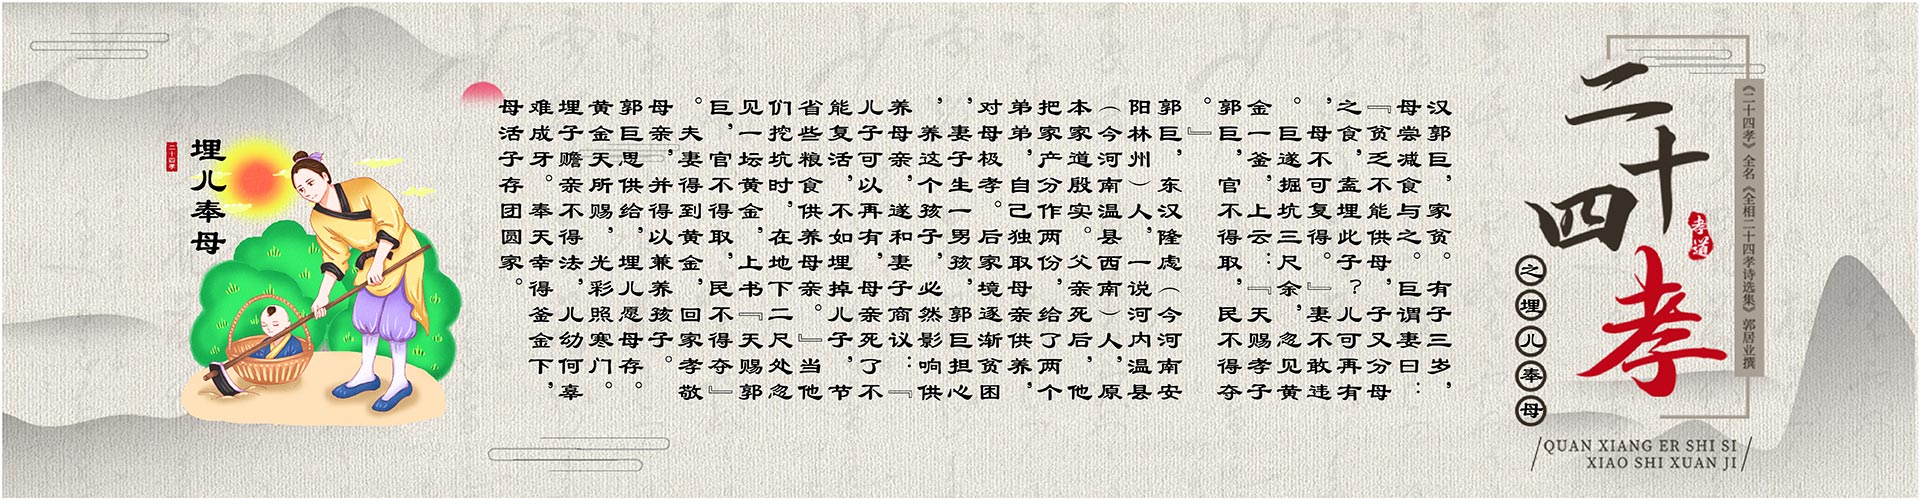 二十四孝
《二十四孝》全名《全相二十四孝诗选集》郭居业撰
孝道
之埋儿奉母
QUAN XIANG ER SHI SI
XIAO SHI XUAN JI
汉郭巨，家贫。有子三岁，
母尝减食与之。巨谓妻曰：
『贫乏不能供母，子又分母
之食，盍埋此子？儿可再有
，母不可复得。』妻不敢违
。巨遂掘坑三尺余，忽见黄
金一釜，上云：『天赐孝子
郭巨，官不得取，民不得夺
。』
郭巨，东汉隆虑（今河南安
阳林州）人，一说河内温县
（今河南温县西南）人，原
本家道殷实。父亲死后，他
把家产分作两份，给了两个
弟弟，自己独取母亲供养，
对母极孝。后家境逐渐贫困
，妻子生一男孩，郭巨担心
，养这个孩子，必然影响供
养母亲，遂和妻子商议：『
儿子可以再有，母亲死了不
能复活，不如埋掉儿子，节
省些粮食供养母亲。』当他
们挖坑时，在地下二尺处忽
见一坛黄金，上书『天赐郭
巨，官不得取，民不得夺』
。夫妻得到黄金，回家孝敬
母亲，并得以兼养孩子。
郭巨思供给，埋儿愿母存。
黄金天所赐，光彩照寒门。
埋子赡亲不得法，儿幼何辜
难成牙。奉天幸得釜金下，
母活子存团圆家。
埋儿奉母
二十四孝